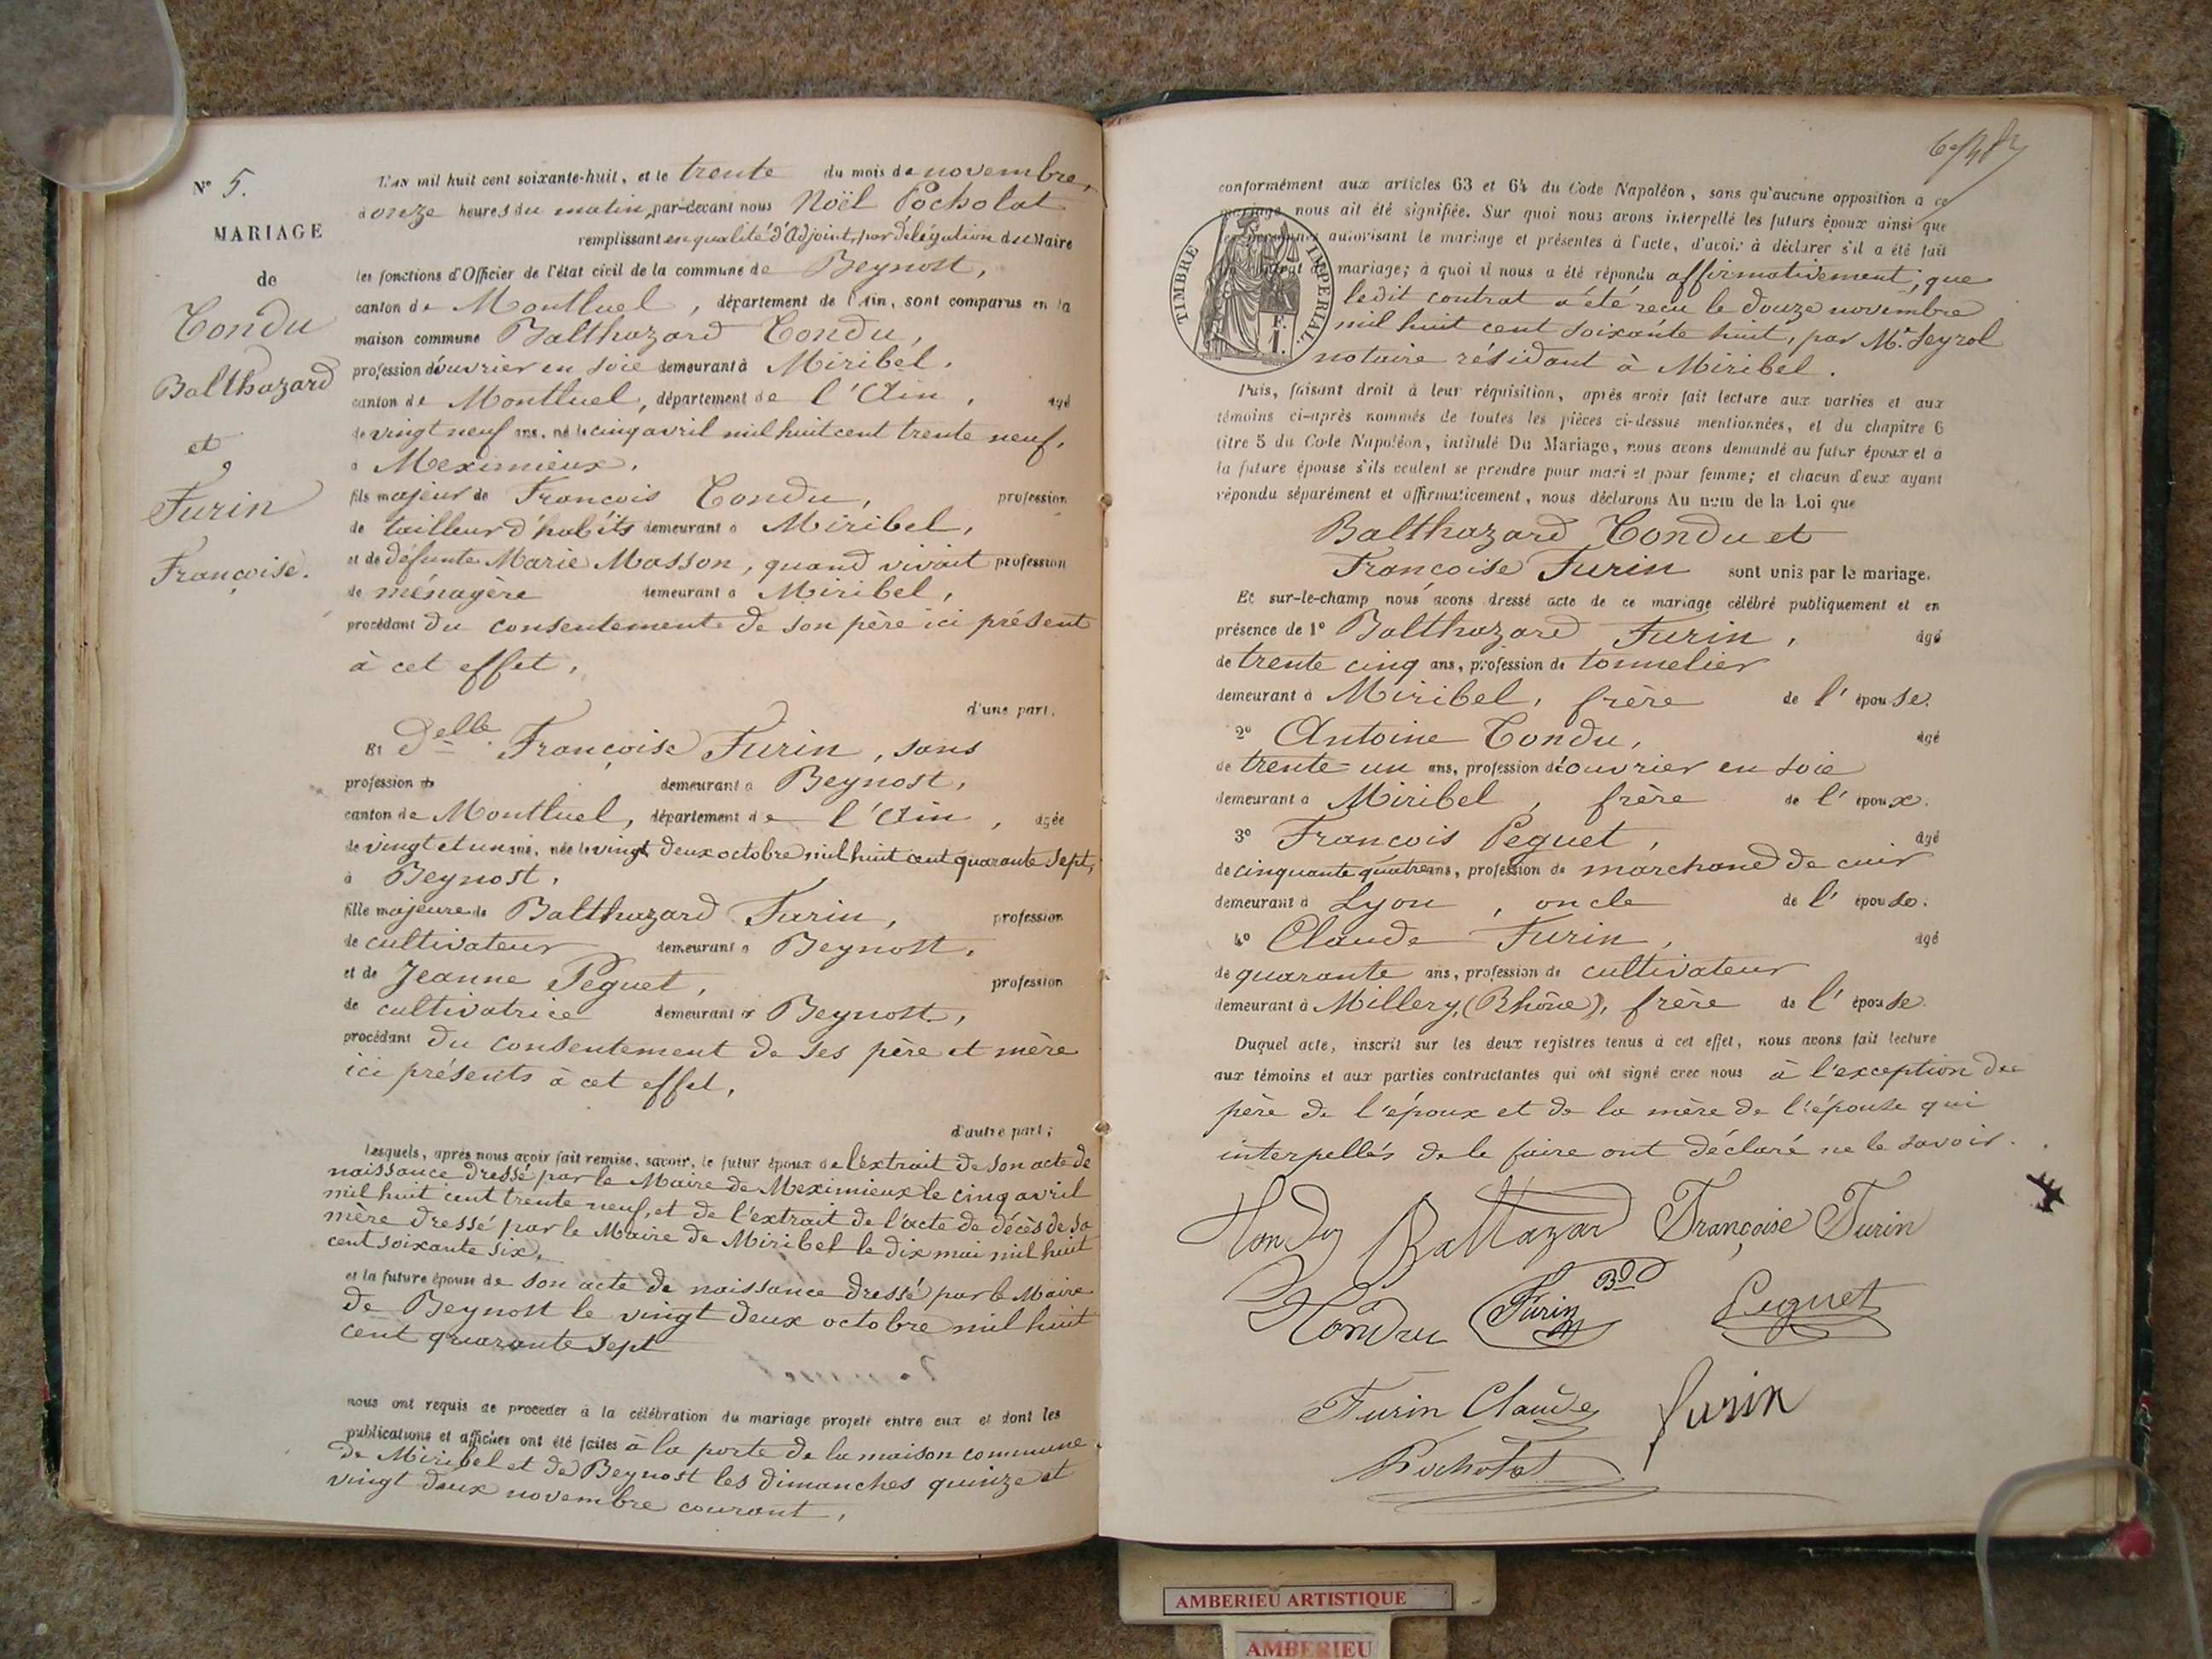 N° 5.
MARIAGE
de
Condu
Balthazard
et
Furin
Françoise.
L'AN mil huit cent soixante-huit, et le trente du mois de novembre,
à onze heures du matin, par-devant nous Noël Pocholat
remplissant en qualité d'Adjoint, par délégation du Maire
les fonctions d'Officier de l'état civil de la commune de Beynost,
canton de Montluel, département de l'Ain, sont comparus en la
maison commune Balthazard Condu,
profession d'ouvrier en soie demeurant à Miribel,
canton de Montluel, département de l'Ain, agé
de vingt neuf ans, né le cinq avril mil huit cent trente neuf,
à Meximieux,
fils majeur de François Condu, profession
de tailleur d'habits demeurant à Miribel,
et de défunte Marie Masson, quand vivait profession
de ménagère demeurant à Miribel,
procédant du consentement de son père ici présent
à cet effet,
d'une part.
Et Delle Françoise Furin, sans
profession de demeurant à Beynost,
canton de Montluel, département de l'Ain, agée
de vingt et un ans, née le vingt deux octobre mil huit cent quarante sept,
à Beynost,
fille majeure de Balthazard Furin, profession
de cultivateur demeurant à Beynost,
et de Jeanne Peguet, profession
de cultivatrice demeurant à Beynost,
procédant du consentement de ses père et mère
ici présents à cet effet,
d'autre part;
Lesquels, après nous avoir fait remise, savoir, le futur époux de l'extrait de son acte de
naissance dressé par le Maire de Meximieux le cinq avril
mil huit cent trente neuf, et de l'extrait de l'acte de décès de sa
mère dressé par le Maire de Miribel le dix mai mil huit
cent soixante six,
et la future épouse de son acte de naissance dressé par le Maire
de Beynost le vingt deux octobre mil huit
cent quarante sept
nous ont requis de procéder à la célébration du mariage projeté entre eux et dont les
publications et affiches ont été faites à la porte de la maison commune
de Miribel et de Beynost les dimanches quinze et
vingt deux novembre courant,
conformément aux articles 63 et 64 du Code Napoléon, sans qu'aucune opposition à ce
mariage nous ait été signifiée. Sur quoi nous avons interpellé les futurs époux ainsi que
les personnes autorisant le mariage et présentes à l'acte, d'avoir à déclarer s'il a été fait
contrat de mariage; à quoi il nous a été répondu affirmativement, que
ledit contrat a été reçu le douze novembre
mil huit cent soixante huit, par Mr. Seyzol
notaire résidant à Miribel.
TIMBRE IMPERIAL.
1. F.
Puis, faisant droit à leur réquisition, après avoir fait lecture aux parties et aux
témoins ci-après nommés de toutes les pièces ci-dessus mentionnées, et du chapitre 6
titre 5 du Code Napoléon, intitulé Du Mariage, nous avons demandé au futur époux et à
la future épouse s'ils veulent se prendre pour mari et pour femme; et chacun d'eux ayant
répondu séparément et affirmativement, nous déclarons Au nom de la Loi que
Balthazard Condu et
Françoise Furin sont unis par le mariage.
Et sur-le-champ nous avons dressé acte de ce mariage célébré publiquement et en
présence de 1° Balthazard Furin, âgé
de trente cinq ans, profession de tonnelier
demeurant à Miribel, frère de l'épouse.
2° Antoine Condu, agé
de trente-un ans, profession d'ouvrier en soie
demeurant à Miribel, frère de l'époux.
3° François Peguet, âgé
de cinquante quatre ans, profession de marchand de cuir
demeurant à Lyon, oncle de l'épouse.
4° Claude Furin, âgé
de quarante ans, profession de cultivateur
demeurant à Millery, (Rhône), frère de l'épouse.
Duquel acte, inscrit sur les deux registres tenus à cet effet, nous avons fait lecture
aux témoins et aux parties contractantes qui ont signé avec nous à l'exception du
père de l'époux et de la mère de l'épouse qui
interpellés de le faire ont déclaré ne le savoir.
Condu Baltazar Françoise Furin
Condu Furin Bd Peguet
Furin Claude furin
Pocholat
AMBERIEU ARTISTIQUE
AMBERIEU